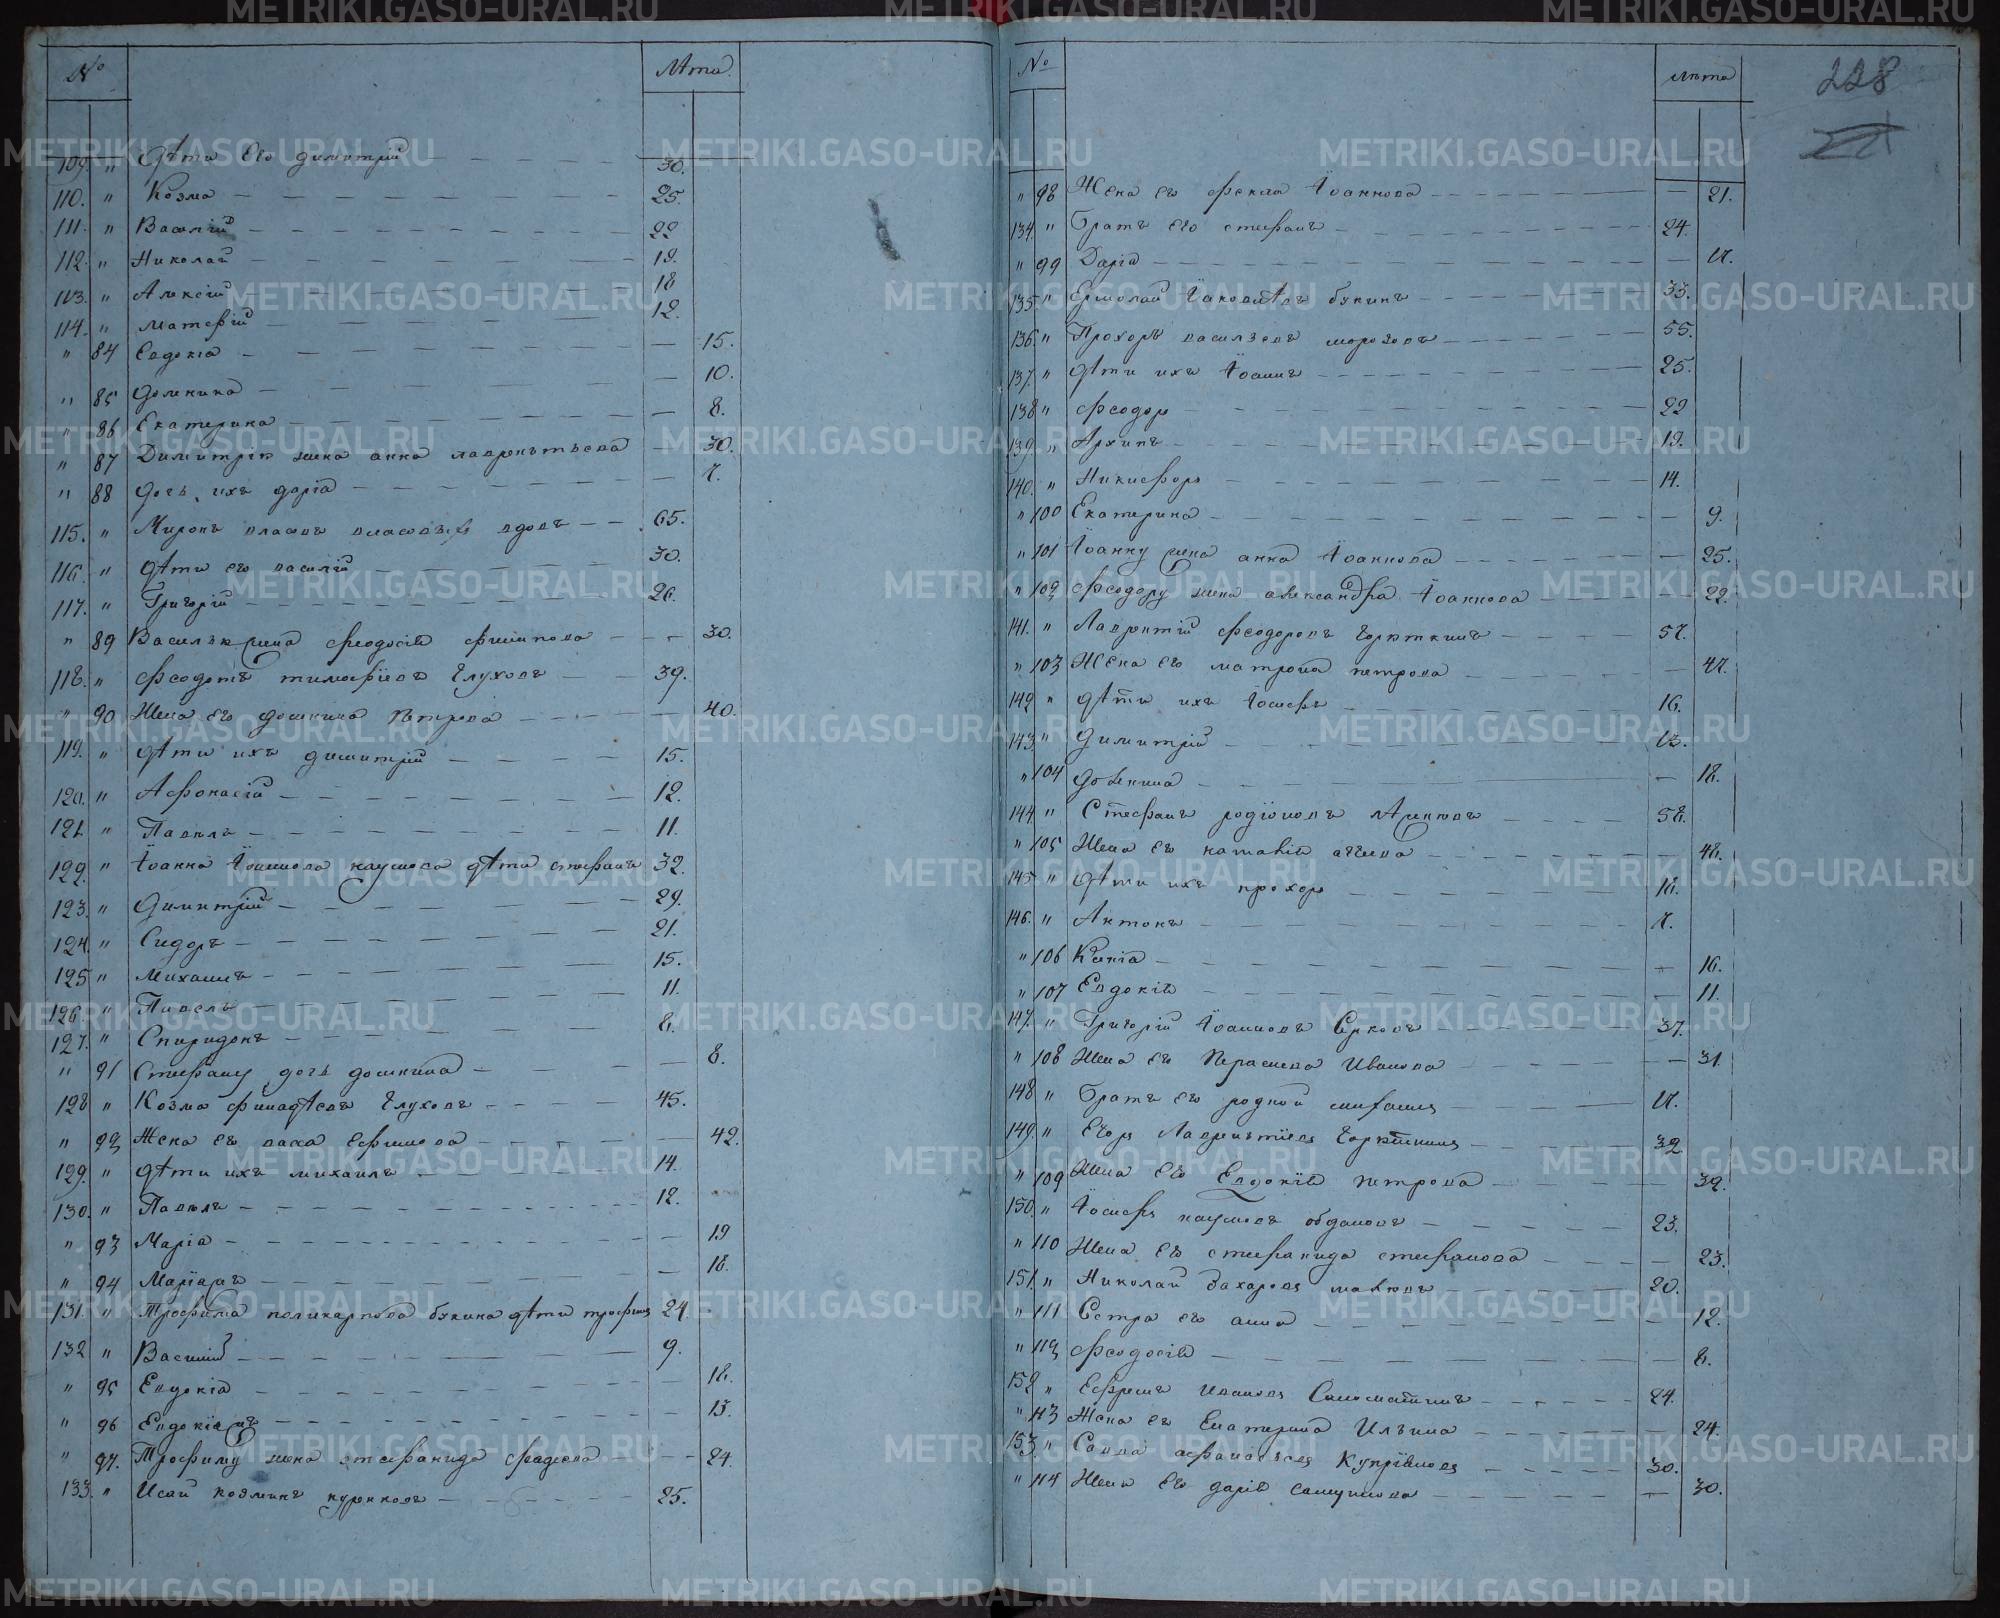 № Лѣта
109. " Дѣти его Димитрій 30.
110. " Козма 25.
111. " Василій 22
112. " Николай 19.
113. " Алексій 18
114. " Матөій 12.
" 84 Евдокіа 15.
" 85 Домника 10.
" 86 Екатерина 8.
" 87 Димитріа жена анна лаврентьева 30.
" 88 дочь ихъ даріа 7.
115. " Миронъ вдовъ 65.
116. " Дѣти его василій 30.
117. " Григорій 26.
" 89 Василья жена феодосія филипова 30.
118. " Феодотъ тимофіевъ Глуховъ 39.
" 90 Жена его домнина Петрова 40.
119. " Дѣти ихъ димитрій 15.
120. " Афонасій 12.
121. " Павелъ 11.
122. " Іоанна Іоаннова наумова дѣти стефанъ 32.
123. " Димитрій 29.
124. " Сидоръ 21.
125 " Михаилъ 15.
126. " Павелъ 11.
127. " Спиридонъ 8.
" 91 Стефану дочь домнина 8.
128 " Козма финадѣевъ Глуховъ 45.
" 92 Жена его васса Ефимова 42.
129. " Дѣти ихъ михаилъ 14.
130. " Павелъ 12.
" 93 Маріа 19
" 94 Маріамъ 18.
131. " Трофима поликарпова букина дѣти трофимъ 24.
132 " Василій 9.
" 95 Евдокіа 18.
" 96 Евдокіа 13.
" 97. Трофиму жена стефанида фадѣева 24.
133. " Исай козминъ куренковъ 25.
№ лѣта 228
" 98 Жена его фекла Іоаннова 21.
134. " Братъ его стефанъ 24.
" 99 Даріа 17.
135. " Ермолай Іаковлѣвъ букинъ 33.
136. " Прохоръ васильевъ морозовъ 55.
137. " Дѣти ихъ Іоаннъ 25.
138 " Феодоръ 22
139. " Архипъ 19.
140. " Никифоръ 14.
" 100 Екатерина 9.
" 101 Іоанну жена анна Іоаннова 25.
" 102 Феодору жена александра Іоаннова 22.
141. " Лаврентій феодоровъ 57.
" 103 Жена его матрона петрова 47.
142 " Дѣти ихъ Іосифъ 16.
143. " Димитрій 13.
" 104 18.
144 " Стефанъ родіоновъ 58.
" 105 Жена его наталія 48.
145 " Дѣти ихъ прохоръ 18.
146. " Антонъ 7.
" 106 Ксенія 16.
" 107 Евдокія 11.
147. " Григорій Іоанновъ 37.
" 108 Жена его Парасковья Иванова 31
148 " Братъ его родной 17.
149. " Егоръ Лаврентіевъ 32
" 109 Жена его Евдокія петрова 32.
150. " Іосифъ наумовъ 23.
" 110 Жена его стефанида стефанова 23.
151. " Николай Захаровъ 20.
" 111 Сестра его анна 12.
" 112 Феодосія 8.
152 " Ефремъ ивановъ 24.
" 113 Жена его Екатерина Ильина 24.
153. " Савва афанасьевъ 30.
" 114 Жена его дарія самуилова 30.
METRIKI.GASO-URAL.RU